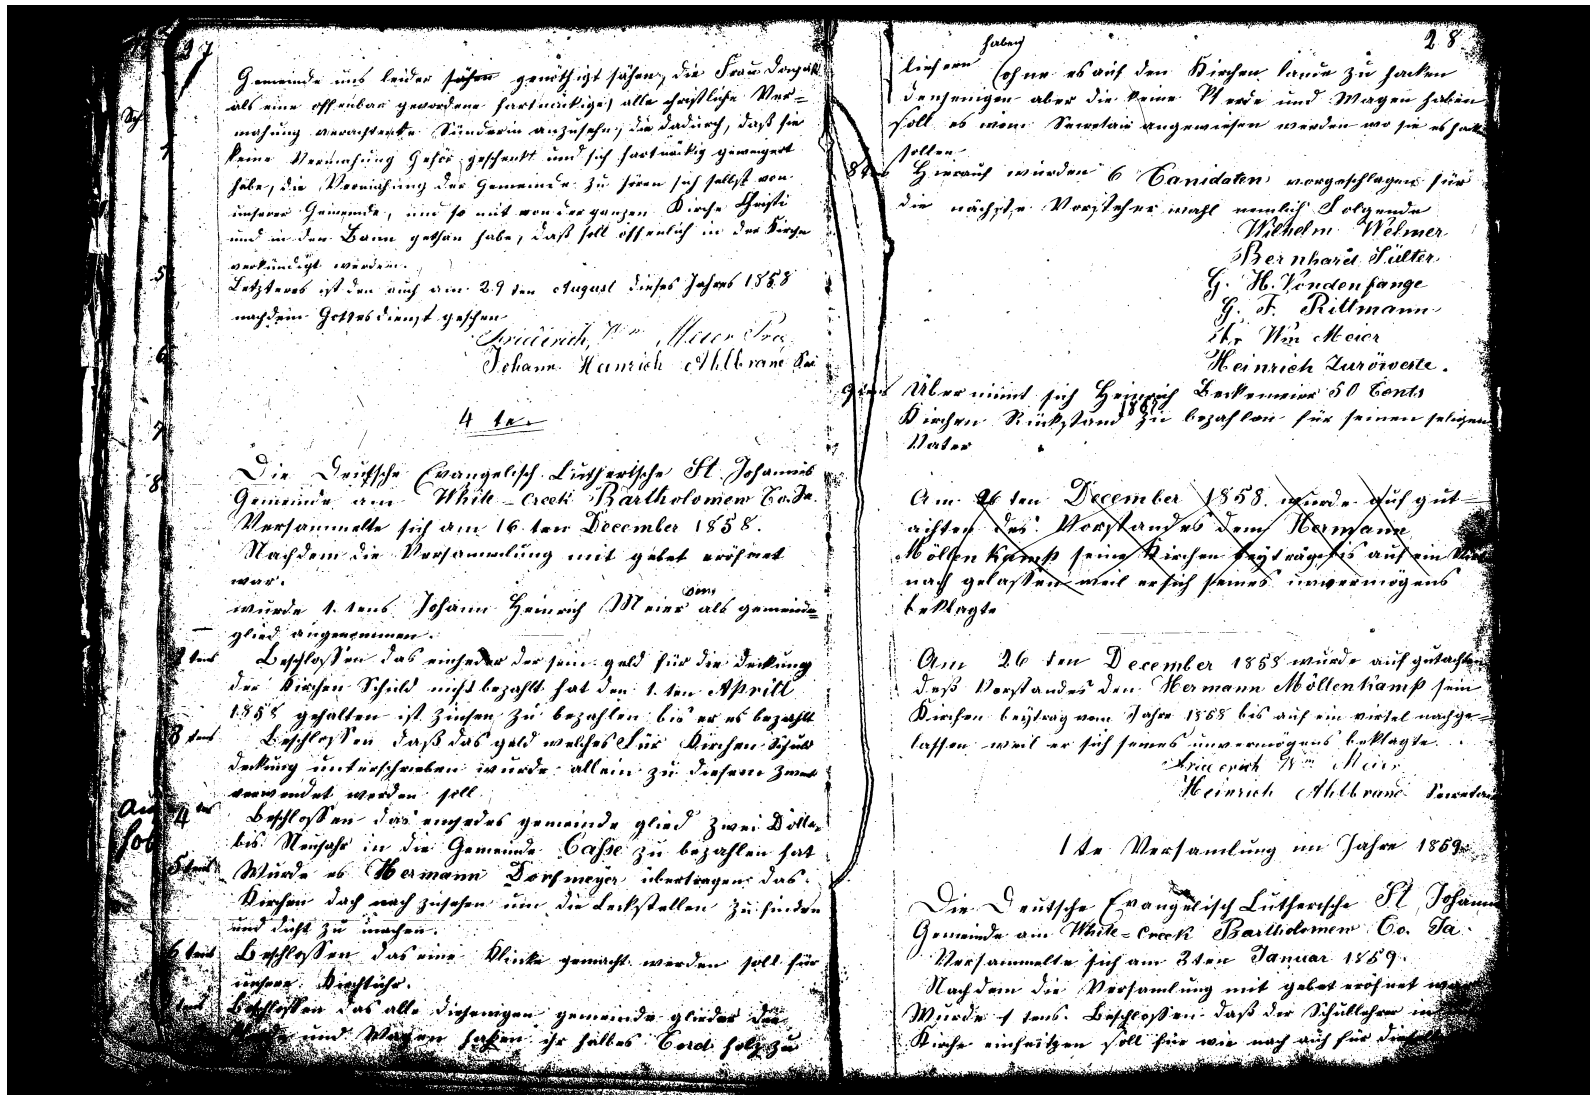 27
Gemeinde uns leider sähen genöthigt sähen, die Frau
als eine offenbar gewordene hartnäckige, alle christliche Ver=
mahnung verachtente Sünderin anzusehn, die dadurch, daß sie
keine Vermahung Gehör geschenkt und sich hartnäckig geweigert
habe, die Vermahung der Gemeinde zu hören sich selbst von
unserer Gemeinde, und so mit von der ganzen Kirche Christi
und in den Bann gethan habe, daß soll öffenlich in der Kirche
verkündigt werden.
Letzteres ist den auch am 29 ten August dieses Jahres 1858
nach dem Gottesdienst geschen
Friederich Wm Meier Pres
Johann Heinrich Ahlbrand
4 te.
Die Deutsche Evangelisch Lutherische St. Johannis
Gemeinde am White-creek Bartholomew Co. Ia.
Versammelte sich am 16 ten December 1858.
Nachdem die Versammlung mit gebet eröfnet
war.
wurde 1. tens Johann Heinrich Meier als gemeinde=
glied angenommen.
2 tens Beschlossen das einjeder der sein geld für die deckung
der Kirchen Schuld nicht bezahlt hat den 1. ten Aprill
1858 gehalten ist Zinsen zu bezahlen bis er es bezahlt
3 tens Beschlossen daß das geld welches für Kirchen Schuld
deckung unterschrieben wurde allein zu diesem Zweck
verwendet werden soll
4 tens Beschlossen das einjedes gemeinde glied zwei Dollar
bis Neujahr in die Gemeinde Casse zu bezahlen hat
5 tens Wurde es Hermann Dorfmeyer übertragen das
Kirchen dach nach zusehen um die Leckstellen zu finden
und dicht zu machen.
6 tens Beschlossen das eine Klinke gemacht werden soll für
unsere Kirchtühr.
tens Beschlossen das alle diejenigen gemeinde glieder die
Pferde und Wagen haben ihr halbes Cord holz zu
28
haben
liefern ohne es auf den Kirchen lande zu hacken
denjenigen aber die keine Pferde und Wagen haben
soll es vom Secretair angewiesen werden wo sie es hacken
sollen
8 tens Hierauf wurden 6 Canidaten vorgeschlagen für
die nächste Vorsteher wahl nemlich Folgende
Wilhelm Welmer
Bernhard Sülter
G. H. Vondenfange
G. F. Rittmann
Wm Meier
Heinrich Zuröweste.
9 tens Übernimt sich Heinrich Beckemeier 50 Cents
Kirchen Rückstand zu bezahlen für seinen seligen
Vater
Am 26 ten December 1858. wurde auf gut=
achten des Vorstandes dem Hermann
Möllenkamp seine Kirchen beyträge bis auf ein
nach gelassen weil er sich seines unvermögens
beklagte
Am 26 ten December 1858 wurde auf gutachten
deß Vorstandes den Hermann Möllenkamp sein
Kirchen beytrag vom Jahre 1858 bis auf ein virtel nachge=
lassen weil er sich seines unvermögens beklagte.
Friederich Wm Meier
Heinrich Ahlbrand Secretair
1 te Versamlung im Jahre 1859.
Die Deutsche Evangelisch Lutherische St Johann
Gemeinde am White-creek Bartholomew Co. Ia.
Versammelte sich am 3 ten Januar 1859.
Nachdem die Versamlung mit gebet eröfnet war
Wurde 1 tens. Beschlossen daß der Schullehrer in
Kirche einheitzen soll für wie nach auch für